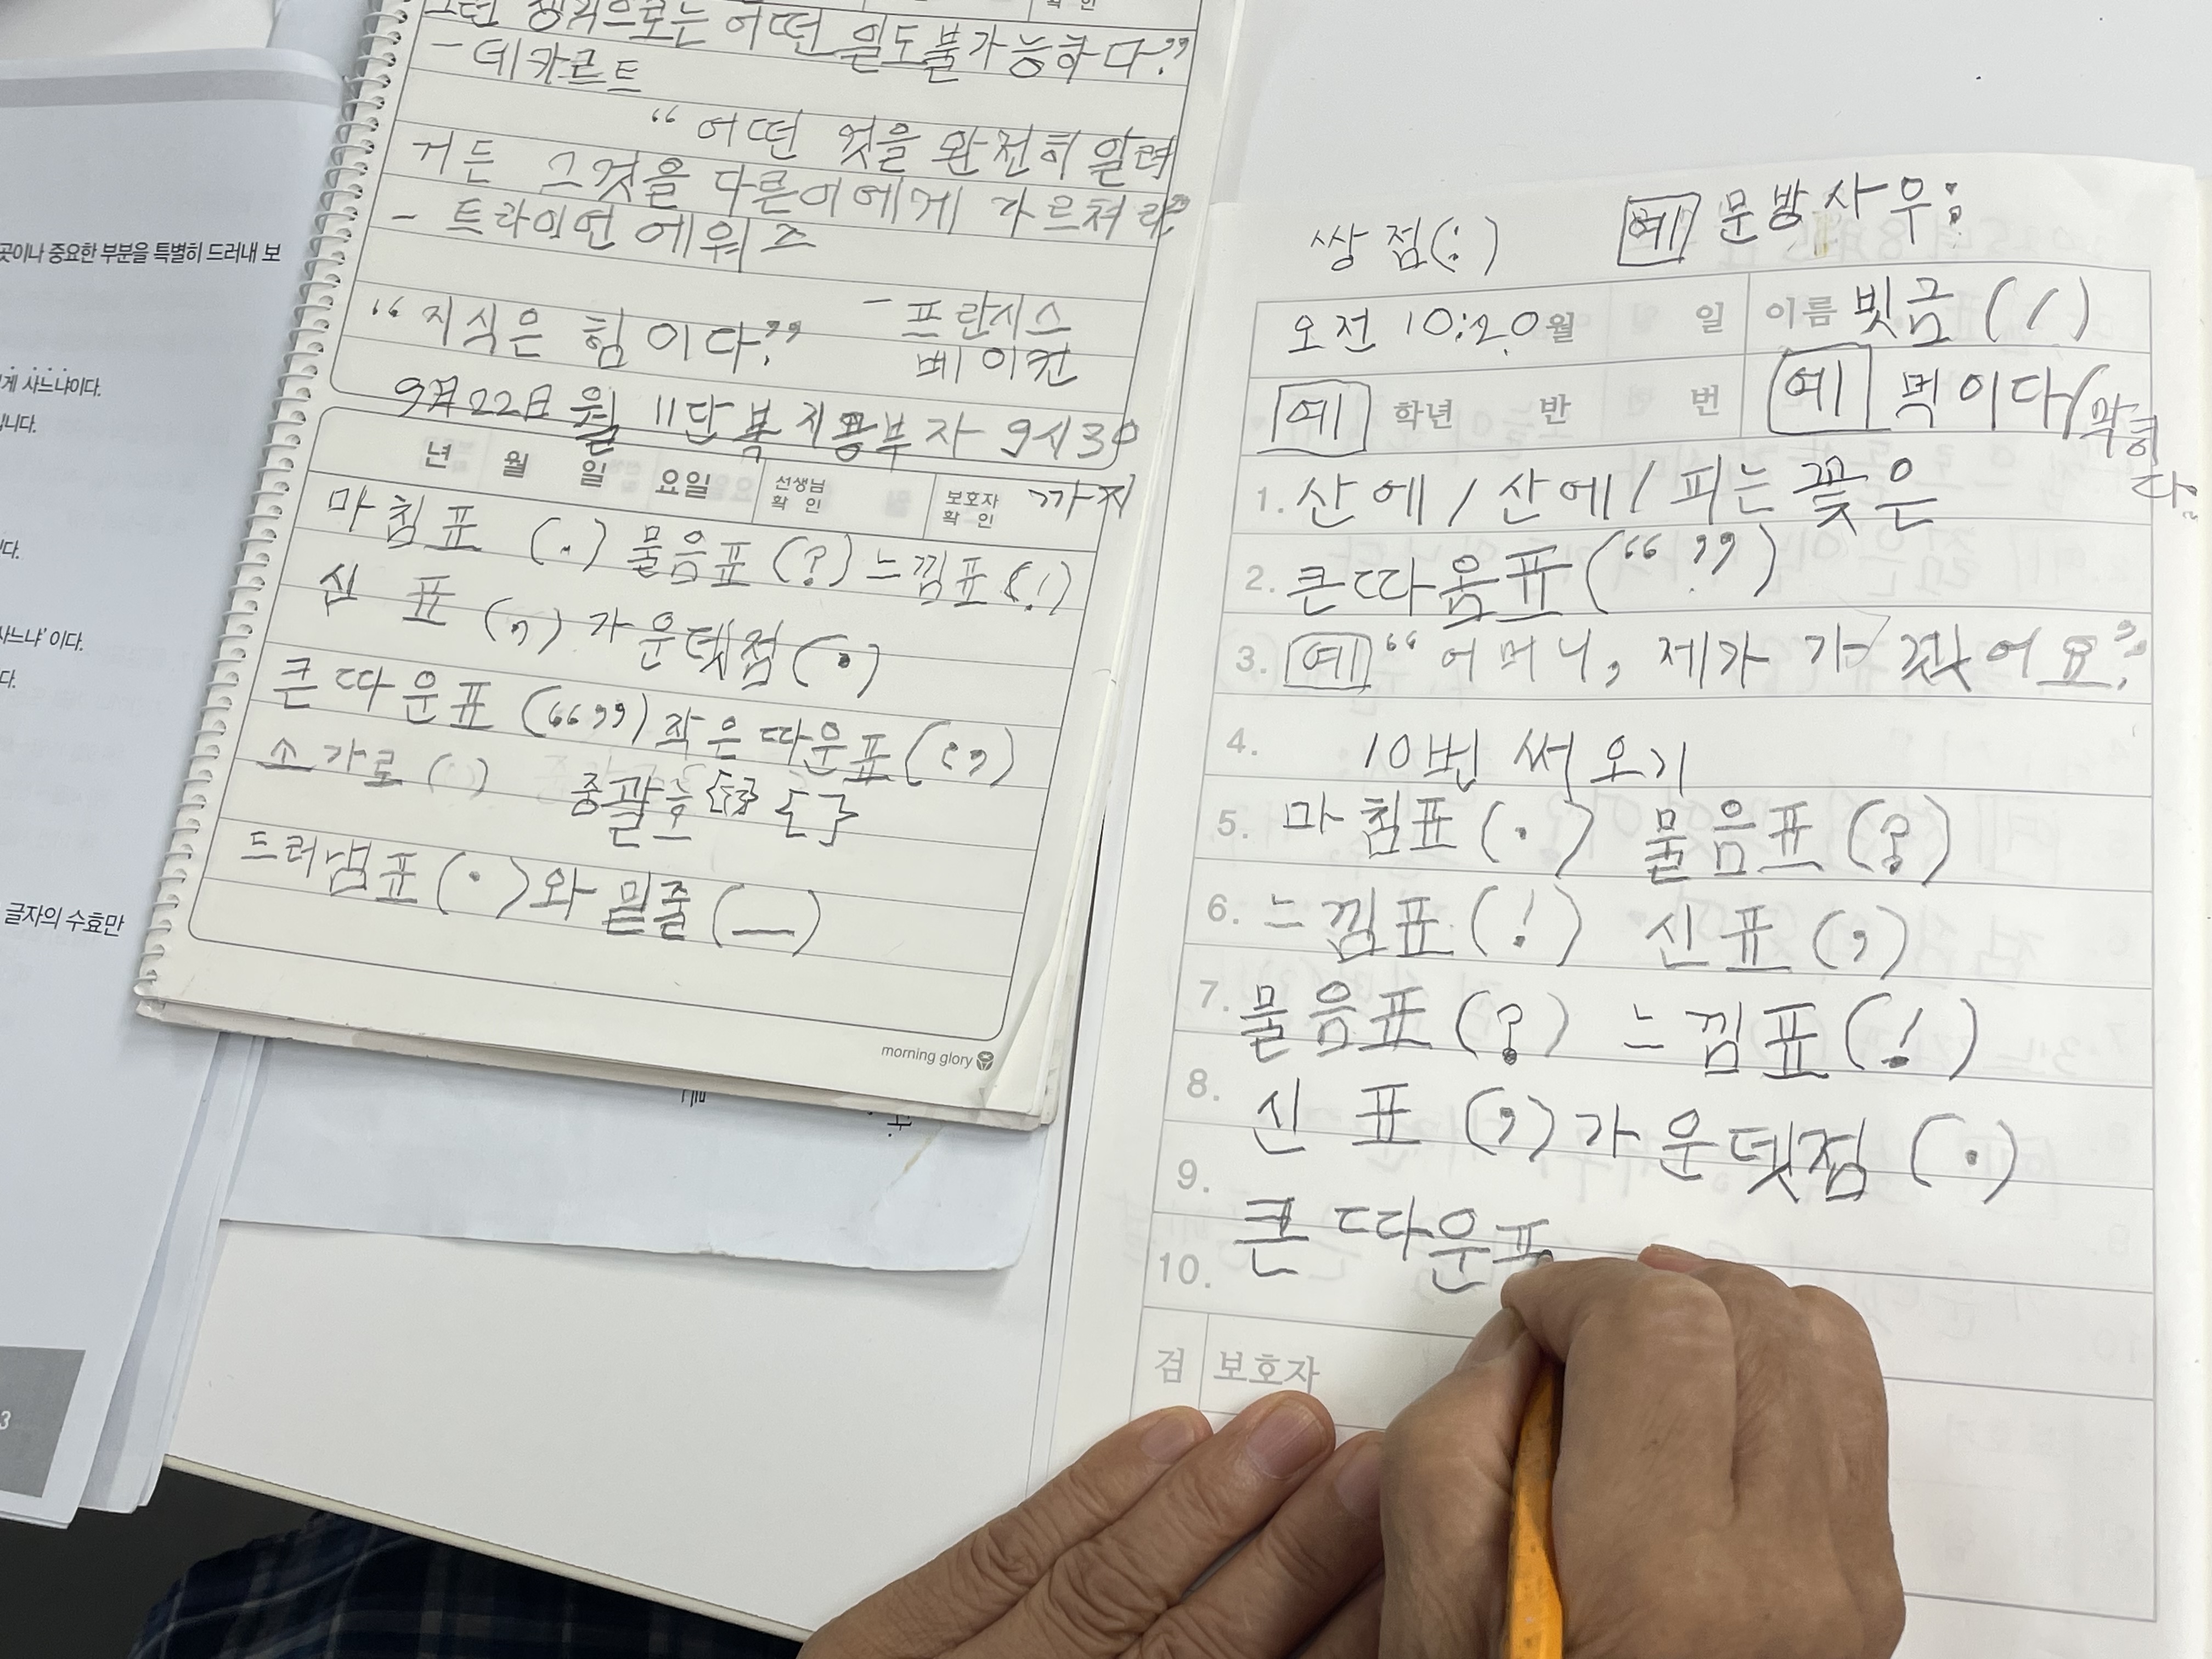 곳이나 중요한 부분을 특별히 드러내 보
게 사느냐이다.
니다.
다.
사느냐' 이다.
다.
글자의 수효만
3
확 인
그런 생각으로는 어떤 일도불가능하다.”
- 데카르트
“어떤 것을 완전히 알려
거든 그것을 다른이에게 가르쳐라”
- 트라이언 에워즈
“지식은 힘이다.” - 프란시스
베이컨
9月22日 월 11답 복지용부자 9시30
까지
년 월 일 요일 선생님 확인 보호자 확인
마침표 (.) 물음표(?) 느낌표(!)
신 표 (,) 가운뎃점(·)
큰따운표 (“ ”) 작은따운표(‘ ’)
소가로 ( ) 중괄호 { }
드러냄표(·)와 밑줄(__)
morning glory
쌍점(:) 예 문방사우:
오전 10:20 월 일 이름 빗금 (/)
예 학년 반 번 예 먹이다/막히
다.
1. 산에/산에/피는 꽃은
2. 큰따옴표(“ ”)
3. 예 “어머니, 제가 가겠어요.”
4. 10번 써오기
5. 마침표(.) 물음표(?)
6. 느낌표(!) 신표(,)
7. 물음표(?) 느낌표(!)
8. 신 표 (,) 가운뎃점 (·)
9. 큰따운표
10.
검 보호자